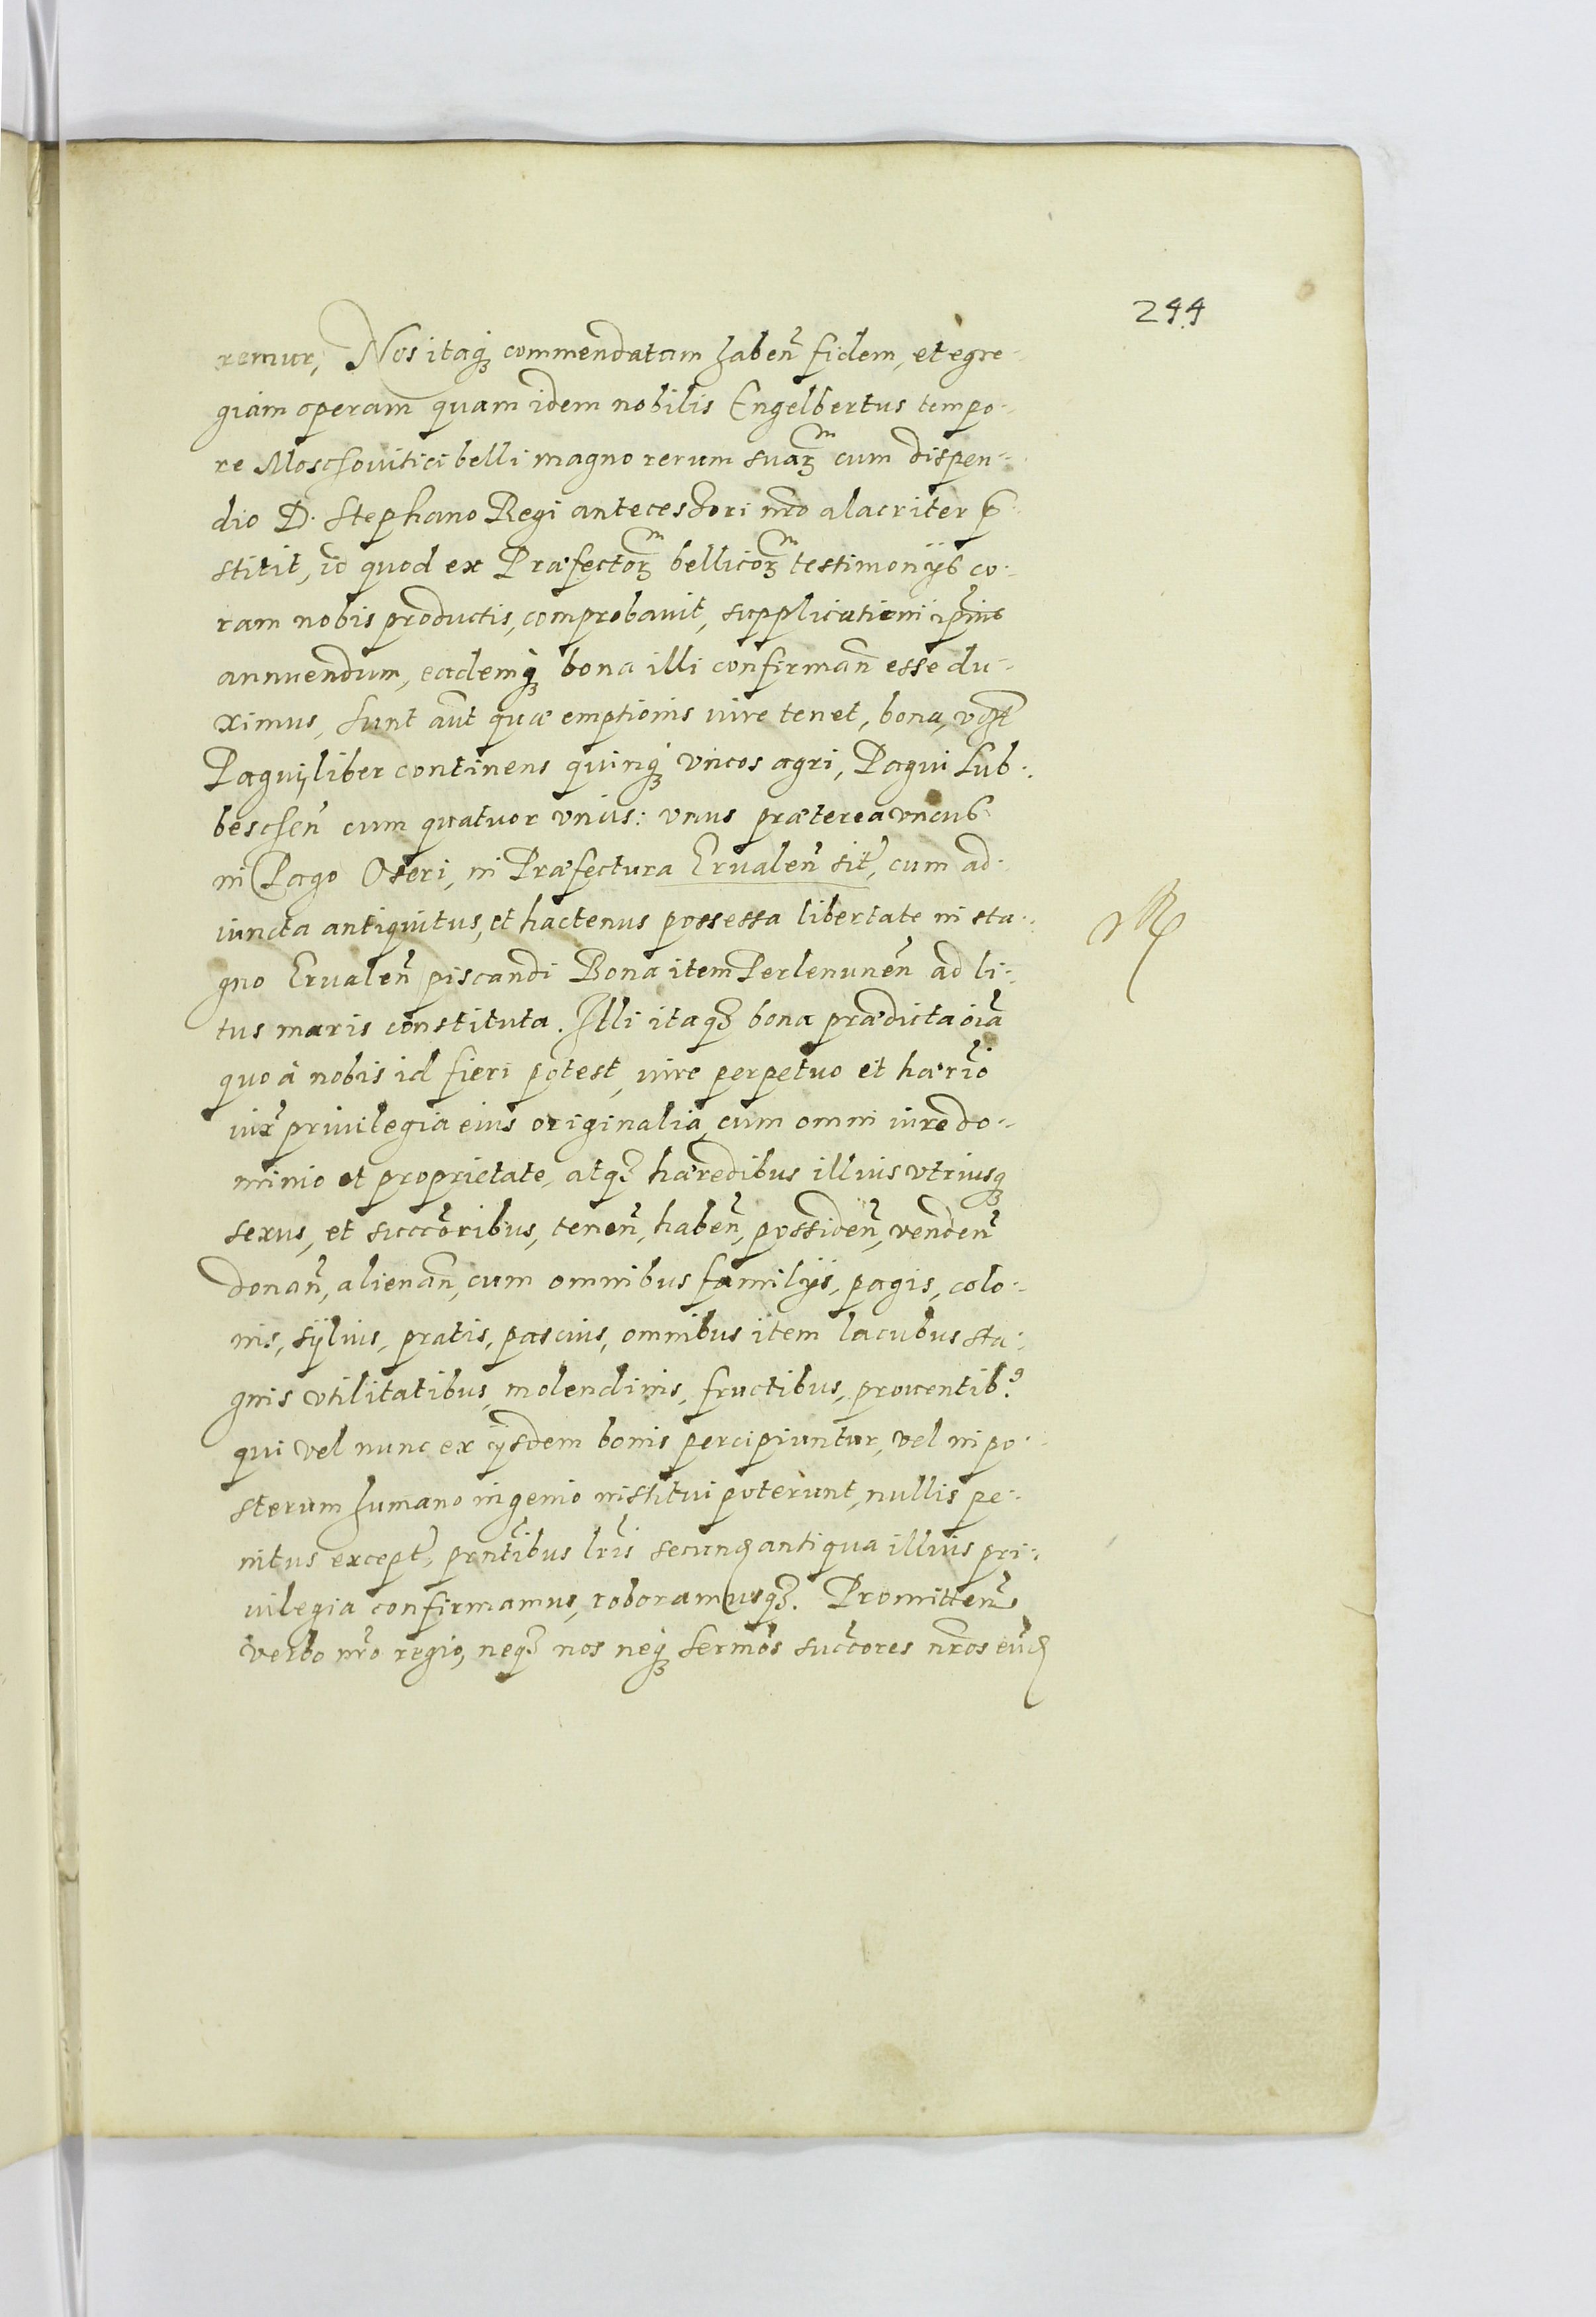 244
remur, Nos itaq₃ commendatam haben̄ fidem, et egre-
giam operam quam idem nobilis Engelbertus tempo-
re Moschouitici belli magno rerum suaꝝ cum dispen-
dio D. Stephano Regi antecessori nr̄o alacriter p̄-
stitit, id quod ex Præfectoꝝ bellicoꝝ testimonijs co-
ram nobis productis, comprobauit, supplicationi ip̄ius
annuendum, eademq₃ bona illi confirman̄ esse du-
ximus, sunt aūt quæ emptionis iure tenet, bona, vꝫt
Paguij liber continens quinq₃ vncos agri, Pagui Lub-
beschen̄ cum quatuor vncis: vnus præterea vncus
in Pago Oseri, in Præfectura Erualen̄ sit̄, cum ad-
iuncta antiquitus, et hactenus possessa libertate in sta-
gno Erualen̄ piscandi Bona item Perlenunen̄ ad li-
tus maris constituta. Illi itaq₃ bona prædicta oīa
quo à nobis id fieri potest, iure perpetuo et hær̄io
iux̄ priuilegia eius originalia, cum omni iure do-
minio et proprietate, atq₃ hæredibus illius vtriusq₃
sexus, et succ̄oribus, tenen̄, haben̄, possiden̄, venden̄
donan̄, alienan̄, cum omnibus familijs, pagis, colo-
nis, syluis, pratis, pascuis, omnibus item lacubus sta-
gnis vtilitatibus, molendinis, fructibus, prouentib⁹
qui vel nunc ex ijsdem bonis percipiuntur, vel in po-
sterum humano ingenio institui poterunt, nullis pe-
nitus except̄, pn̄tibus lr̄is secund antiqua illius pri-
uilegia confirmamus, roboramusq₃. Promitten̄
verbo nr̄o regio, neq₃ nos neq₃ Sermōs succ̄ores nr̄os eūd